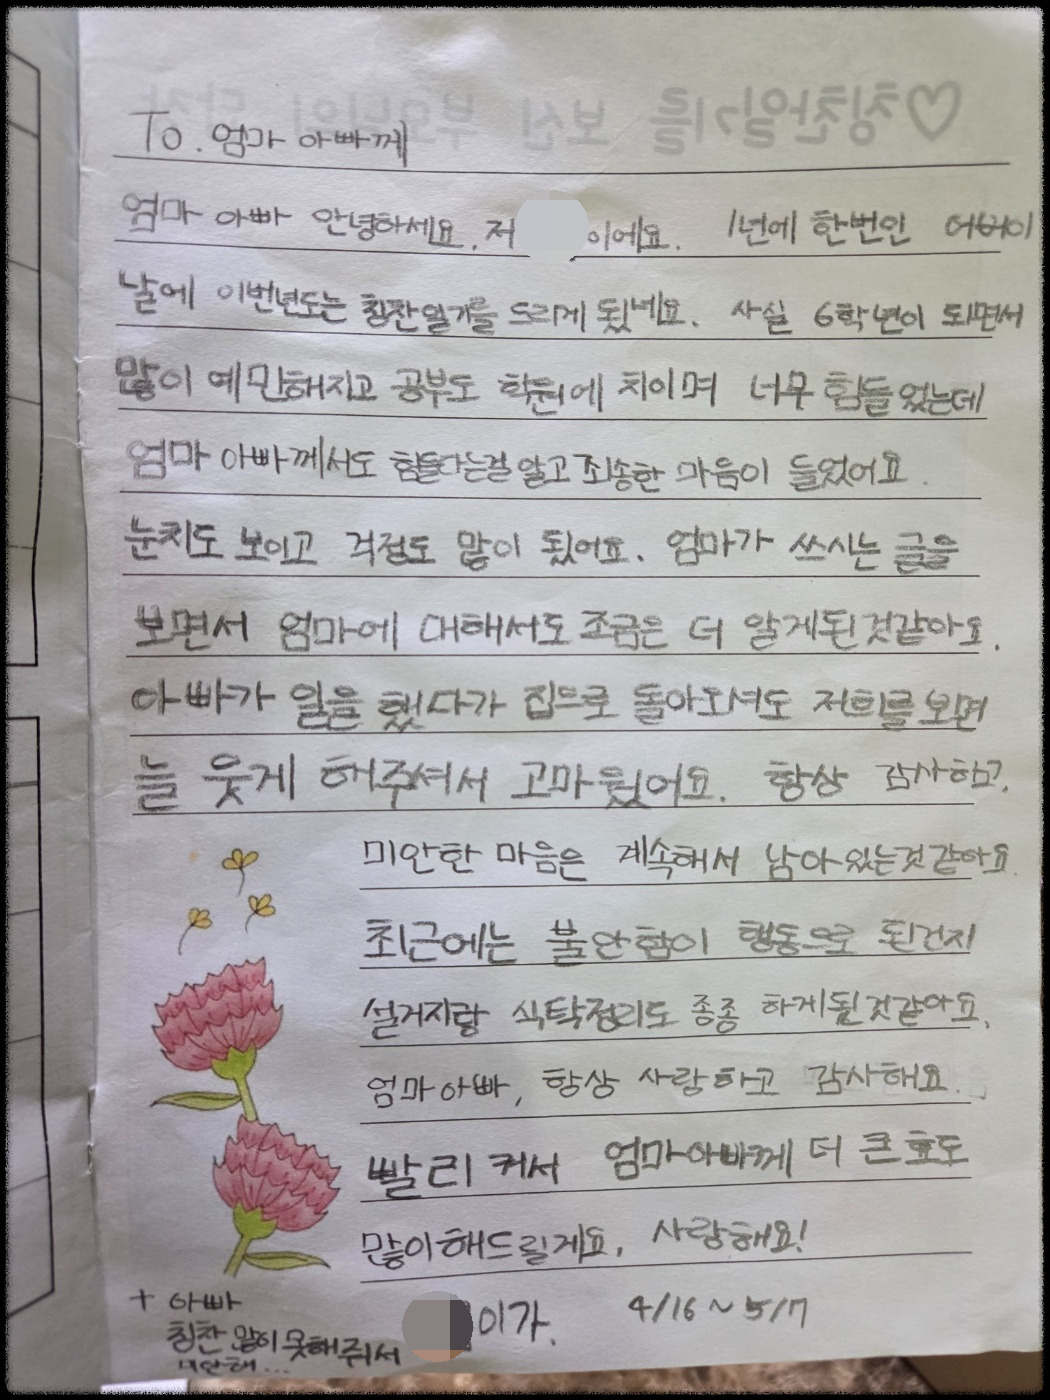 ♡칭찬일기를 보신 부모님의
To. 엄마 아빠께
엄마 아빠 안녕하세요. 저 이에요. 1년에 한번인 어버이
날에 이번년도는 칭찬일기를 드리게 됬네요. 사실 6학년이 되면서
많이 예민해지고 공부도 학원에 치이며 너무 힘들었는데
엄마 아빠께서도 힘들다는걸 알고 죄송한 마음이 들었어요.
눈치도 보이고 걱정도 많이 됬어요. 엄마가 쓰시는 글을
보면서 엄마에 대해서도 조금은 더 알게된것같아요.
아빠가 일을 했다가 집으로 돌아오셔도 저희를 보면
늘 웃게 해주셔서 고마웠어요. 항상 감사하고,
미안한 마음은 계속해서 남아있는것같아요.
최근에는 불안함이 행동으로 된건지
설거지랑 식탁정리도 종종 하게될것같아요.
엄마아빠, 항상 사랑하고 감사해요.
빨리 커서 엄마아빠께 더 큰 효도
많이해드릴게요. 사랑해요!
이가. 4/16 ~ 5/7
+ 아빠
칭찬 많이 못해줘서
미안해...